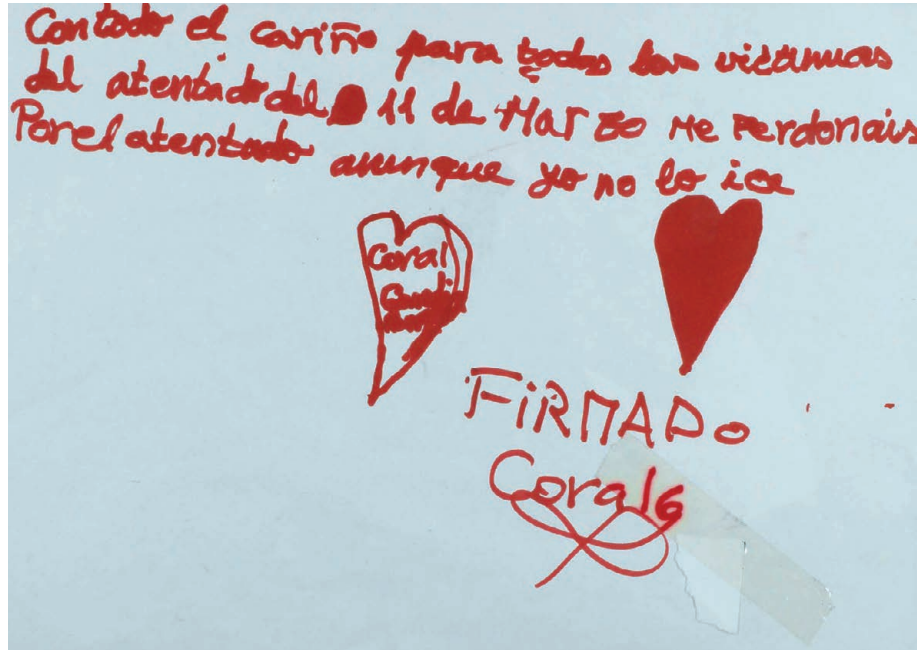 Contodo el cariño para todas las victimas
del atentado del 11 de Marzo Me Perdonais
Por el atentado aunque yo no lo ice
Coral
FiRMADo
Coral G